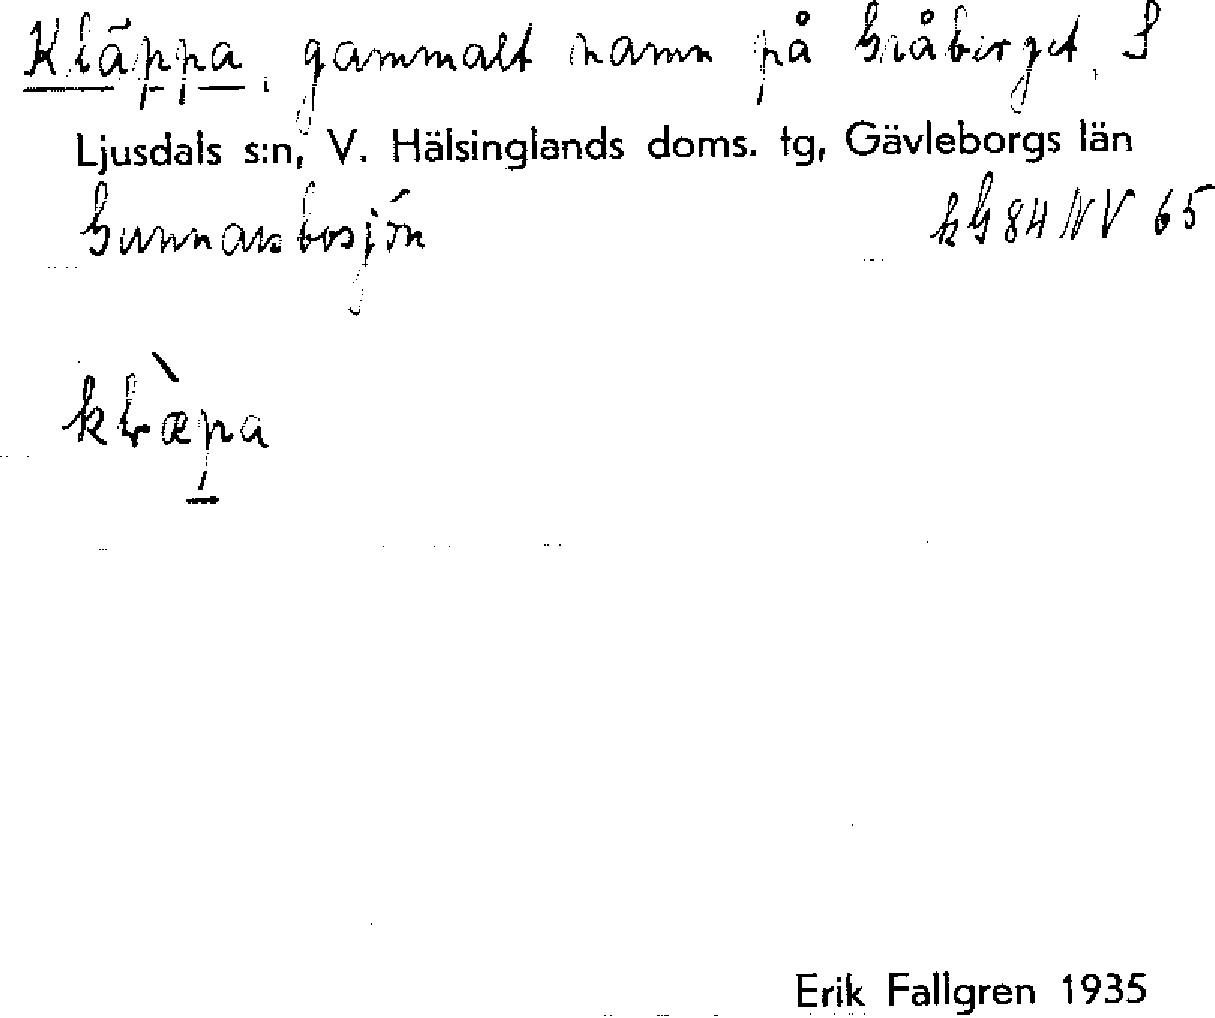 Kläppa, gammalt namn på Gråberget, S
Ljusdals s:n, V. Hälsinglands doms. tg, Gävleborgs län
Gunnarsbosjön kG 84 NV 65
klæ̀pa
Erik Fallgren 1935